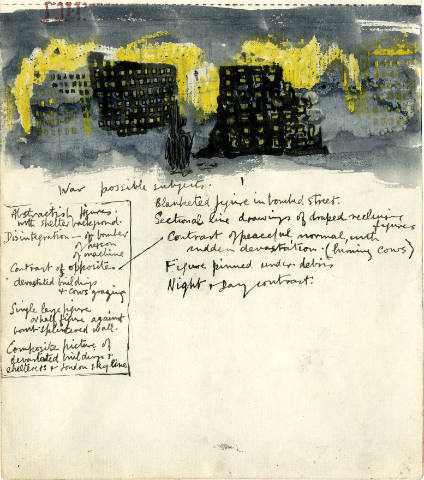 War possible subjects.
Abstractish figures
with shelter background.
Disintegration — of bomber
of person
of machine
Contrast of opposites
devastated buildings
+ cows grazing
Single large figure
or half figure against
bomb-splintered wall.
Composite picture of
devastated buildings +
shelterers + London skyline
Blanketed figure in bombed street.
Sectional line drawings of draped reclining
figures
Contrast of peaceful normal with
sudden devastation. (burning cows)
Figure pinned under debris
Night & Day contrast.